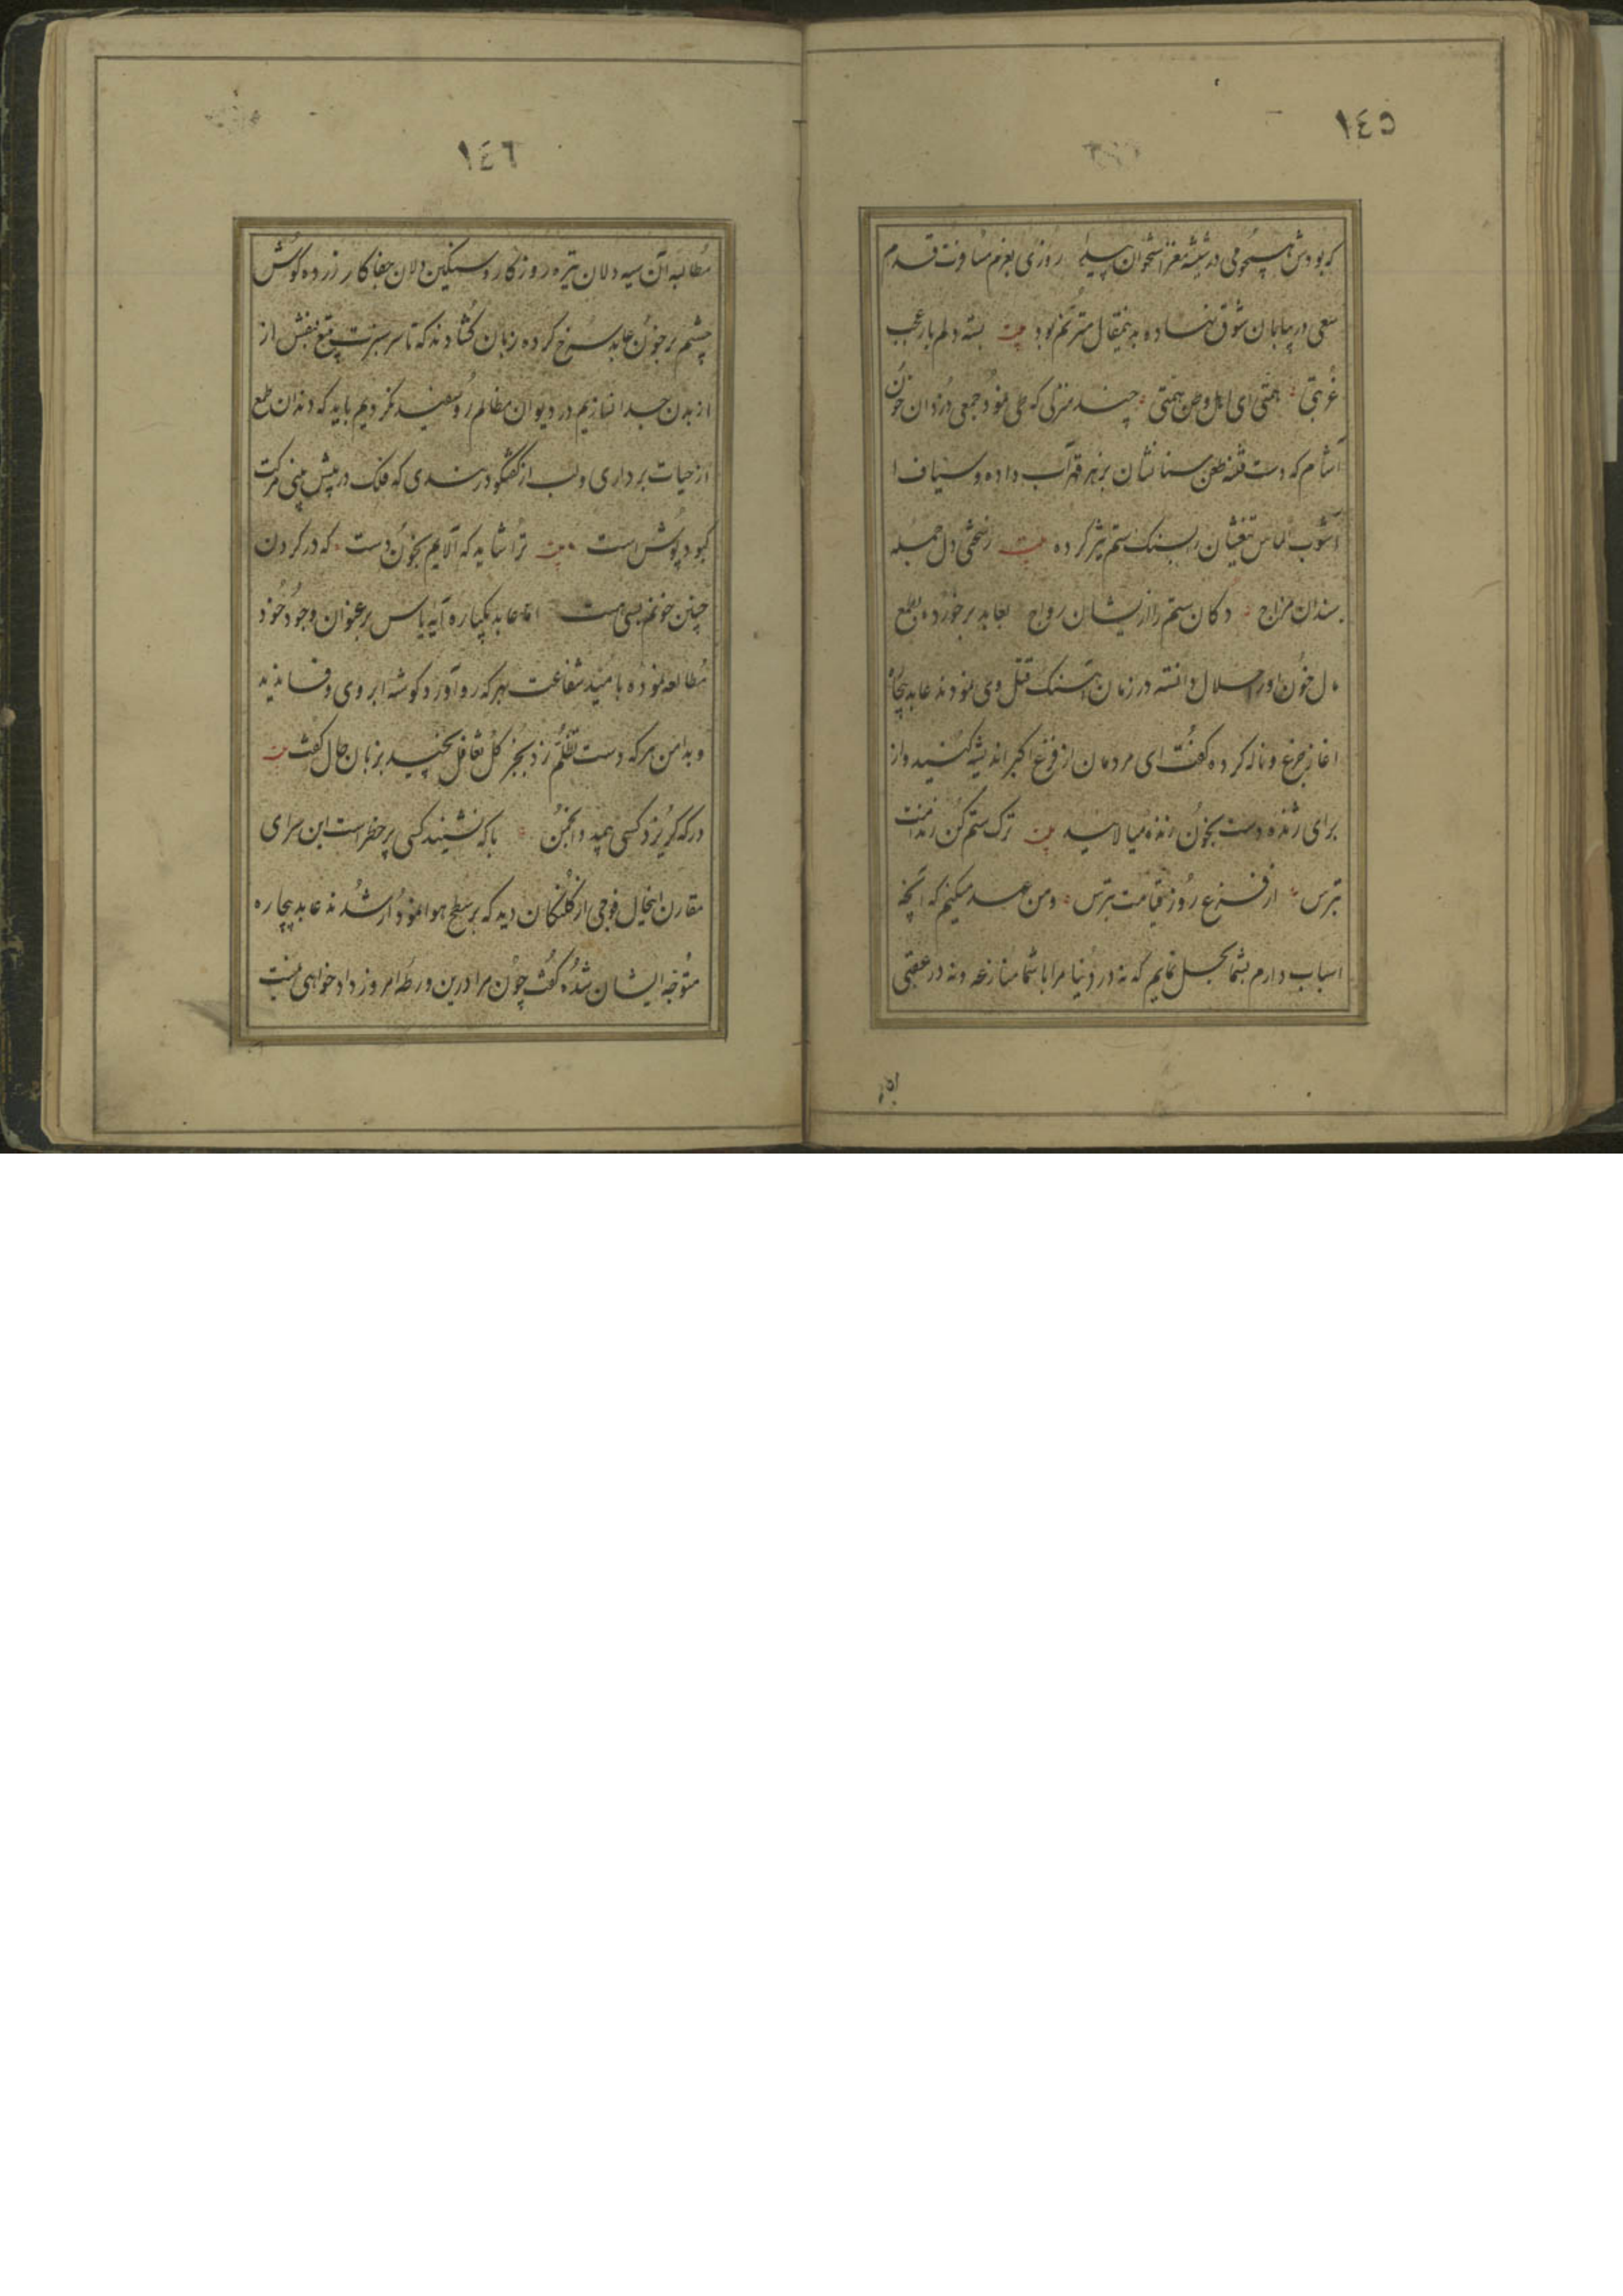 ١٤٥
کر بودش همچو می در شیشه مغز استخوان پیدا روزی بعزم مسافرت قدم
سعی در بیابان شوق نهاده باینمقال مترنم بود بیت بسته دلم بار عجب
غربتی همتی ای اهل وطن همتی چند منزلی که طی نمود جمعی دزدان خون
آشام که دست فتنه طعن سنانشان بزهر قهر آب داده و سیاف
آشوب الماس تیغشان بسنگ ستم تیز کرده بیت زخمی دل جمله
سندان مزاج دکان ستم را ازیشان رواج بعابد برخورده بطمع
مال خون اورا حلال دانسته در زمان آهنگ قتل وی نمودند عابد بیچاره
آغاز جزع و ناله کرده گفت ای مردمان از فزع اکبر اندیشه کنید و از
برای ژنده دست بخون زنده میالایید بیت ترک ستم کن ز ندامت
بترس از فزع روز قیامت بترس ومن عهد میکنم که آنچه
اسباب دارم بشما بحل نمایم که نه در دنیا مرا با شما منازعه و نه در عقبی
١٤٦
مطالبه آن سیه دلان تیره روزکار و سنکین دلان جفاکار زرده کوش
چشم بر خون عابد سرخ کرده زبان کشادند که تا سر سبزت بتیغ بنفش از
از بدن جدا نسازیم در دیوان مظالم روسفید نکردیم باید که دندان طمع
از حیات برداری و لب از گفتگو دربندی که فلک در پیش بینی مرکت
کبود پوش است بیت ترا شاید که آلایم بخون دست که در کردن
چنین خونم بسی هست اما عابد یکباره آیه یاس بر عنوان وجود خود
مطالعه نموده بامید شفاعت بهر که رو آورد کوشه ابروی وفا ندید
و بدامن هر که دست تظلم زد بجز کل تغافل نچید بزبان حال گفت بیت
در که کریزد کسی همچو من با که نشیند کسی پر خطرست این سرای
مقارن اینحال فوجی از کلنکان دید که بر سطح هوا نمودار شدند عابد بیچاره
متوجه ایشان شده گفت چون مرا درین ورطه امروز دادخواهی نیست